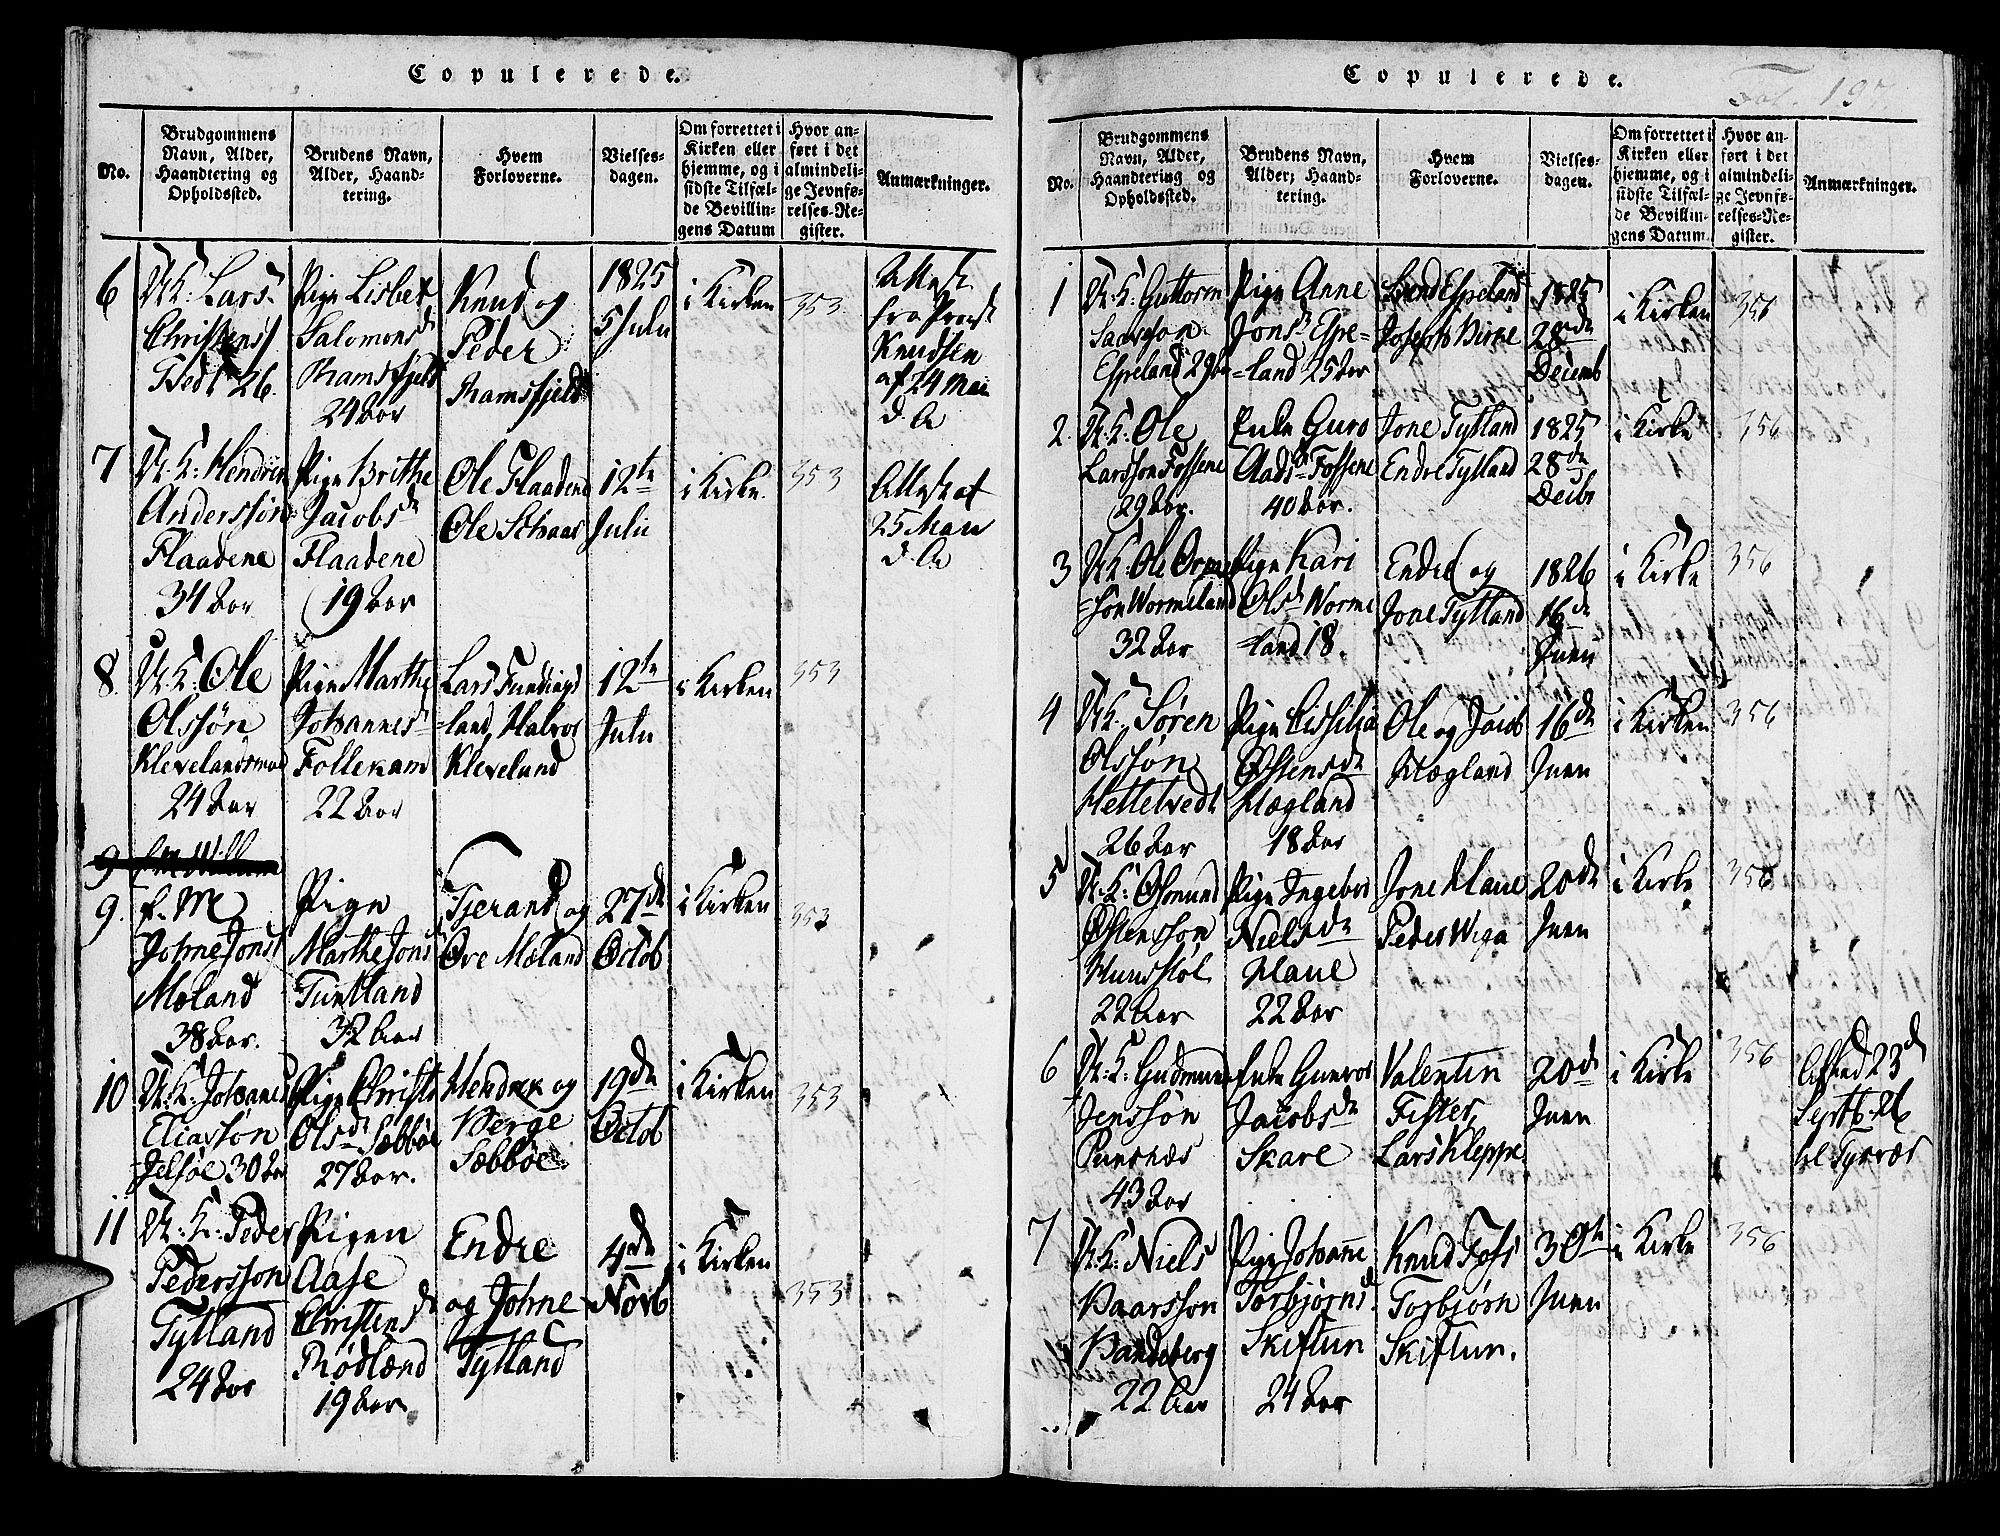 Copulerede.
No.
Brudgommens
Navn, Alder,
Haandtering og
Opholdssted.
Brudens Navn,
Alder, Haand-
tering.
Hvem
Forloverne.
Vielses-
dagen.
Om forrettet i
Kirken eller
hjemme, og i
sidste Tilfæl-
de Bevillin-
gens Datum
Hvor an-
ført i det
almindeli-
ge Jevnfø-
relses-Re-
gister.
Anmærkninger.
6
U: K: Lars
Christenss
Tvedt 26.
Pige Lisbet
Salomonsd
Ramsfjeld
24 Aar
Knud og
Peder
Ramsfjeld
1825
5 Julii
i Kirken
353
Attest
fra Provst
Knudsen
af 24 Mai
d. A
7
U: K: Hendrik
Anderssøn
Flaadene
34 Aar
Pige Brithe
Jacobsd
Flaadene
19 Aar
Ole Flaadene
Ole
12te
Julii
i Kirke.
353
Attest af
25 Maii
d. A
8.
U: K: Ole
Olssøn
24 Aar
Pige Marthe
Johannesd
Follekam
22 Aar
Lars Fundings
land, Halvor
Kleveland
12te
Julii
i Kirken
353
9
9.
E. M
Johne Jons
Mæland
38 Aar.
Pige
Marthe Jonsd
Tuntland
32 Aar
Tjerand og
Ove Mæland
27de
Octob
i Kirken
353
10
U: K: Johannes
Eliassøn
Jelsøe 30 Aar
Pige Christi
Olsd Sæbbøe
27 Aar.
Hendrik og
Berge
Sæbbøe
19de
Octob
i Kirken
353
11
U: K: Peder
Pedersson
Tytland
24 Aar
Pigen
Aase
Christensd
Rødland
19 Aar
Endre
og Johne
Tytland
4de
Novb
i Kirken
353
Copulerede.
Fol. 197.
No.
Brudgommens
Navn, Alder,
Haandtering og
Opholdssted.
Brudens Navn,
Alder, Haand-
tering.
Hvem
Forloverne.
Vielses-
dagen.
Om forrettet i
Kirken eller
hjemme, og i
sidste Tilfæl-
de Bevillin-
gens Datum.
Hvor an-
ført i det
almindeli-
ge Jevnfø-
relses-Re-
gister.
Anmærkninger.
1
U: K: Guttorm
Espeland 29 Aar
Pige Anne
Jonsd Espe=
=land 25 Aar
Espeland
Joseph Birke
1825
28de
Decemb
i Kirken
356
2.
U: K: Ole
Larsson Fossene
29 Aar.
Enke Guro
Aadsd Fossene
40 Aar.
Jone Tytland
Endre Tytland
1825
28de
Decbr
i Kirke
356
3
U: K: Ole Orm
=son Wormeland
32 Aar
Pige Kari
Olsd Worme
=land 18.
Endre og
Jone Tytland
1826
16de
Junii
i Kirke
356
4
U: K: Søren
Olssøn
Hettelvedt
26 Aar
Pige Cissilia
Østensd
Hægland
18 Aar
Ole og Jacob
Hægland
16de
Juni
i Kirken
356
5
U: K: Osmund
Østensson
22 Aar
Pige Ingebor
Nielsd
Hane
22 Aar
Jone Hane
Peder Wiga
20de
Juni
i Kirke
356
6
U: K: Gudmun
Jenssøn
Punsnæs
43 Aar
Enke Gunvor
Jacobsd
Skare
Valentin
Fister,
Lars Kleppe
20de
Juni
i Kirke
356
23d
Septb. 26
til Tysvær
7
U: K: Niels
Baarsson
Bandeberg
22 Aar
Pige Johanne
Torbjørnsd
Skiftun
24 Aar
Knud Foss
Torbjørn
Skiftun.
30te
Juni
i Kirke
356